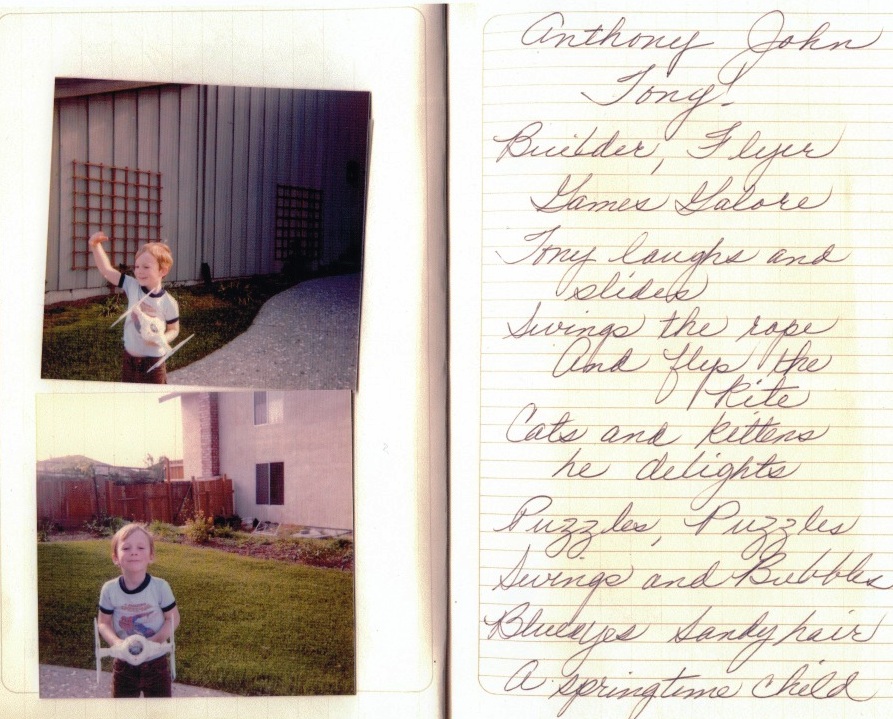 Anthony John
Tony!
Builder, Flyer
Games Galore
Tony laughs and
slides
Swings the rope
And flys the
Kite
Cats and kittens
he delights
Puzzles, Puzzles
Swings and Bubbles
Blueeyes Sandy hair
A springtime child